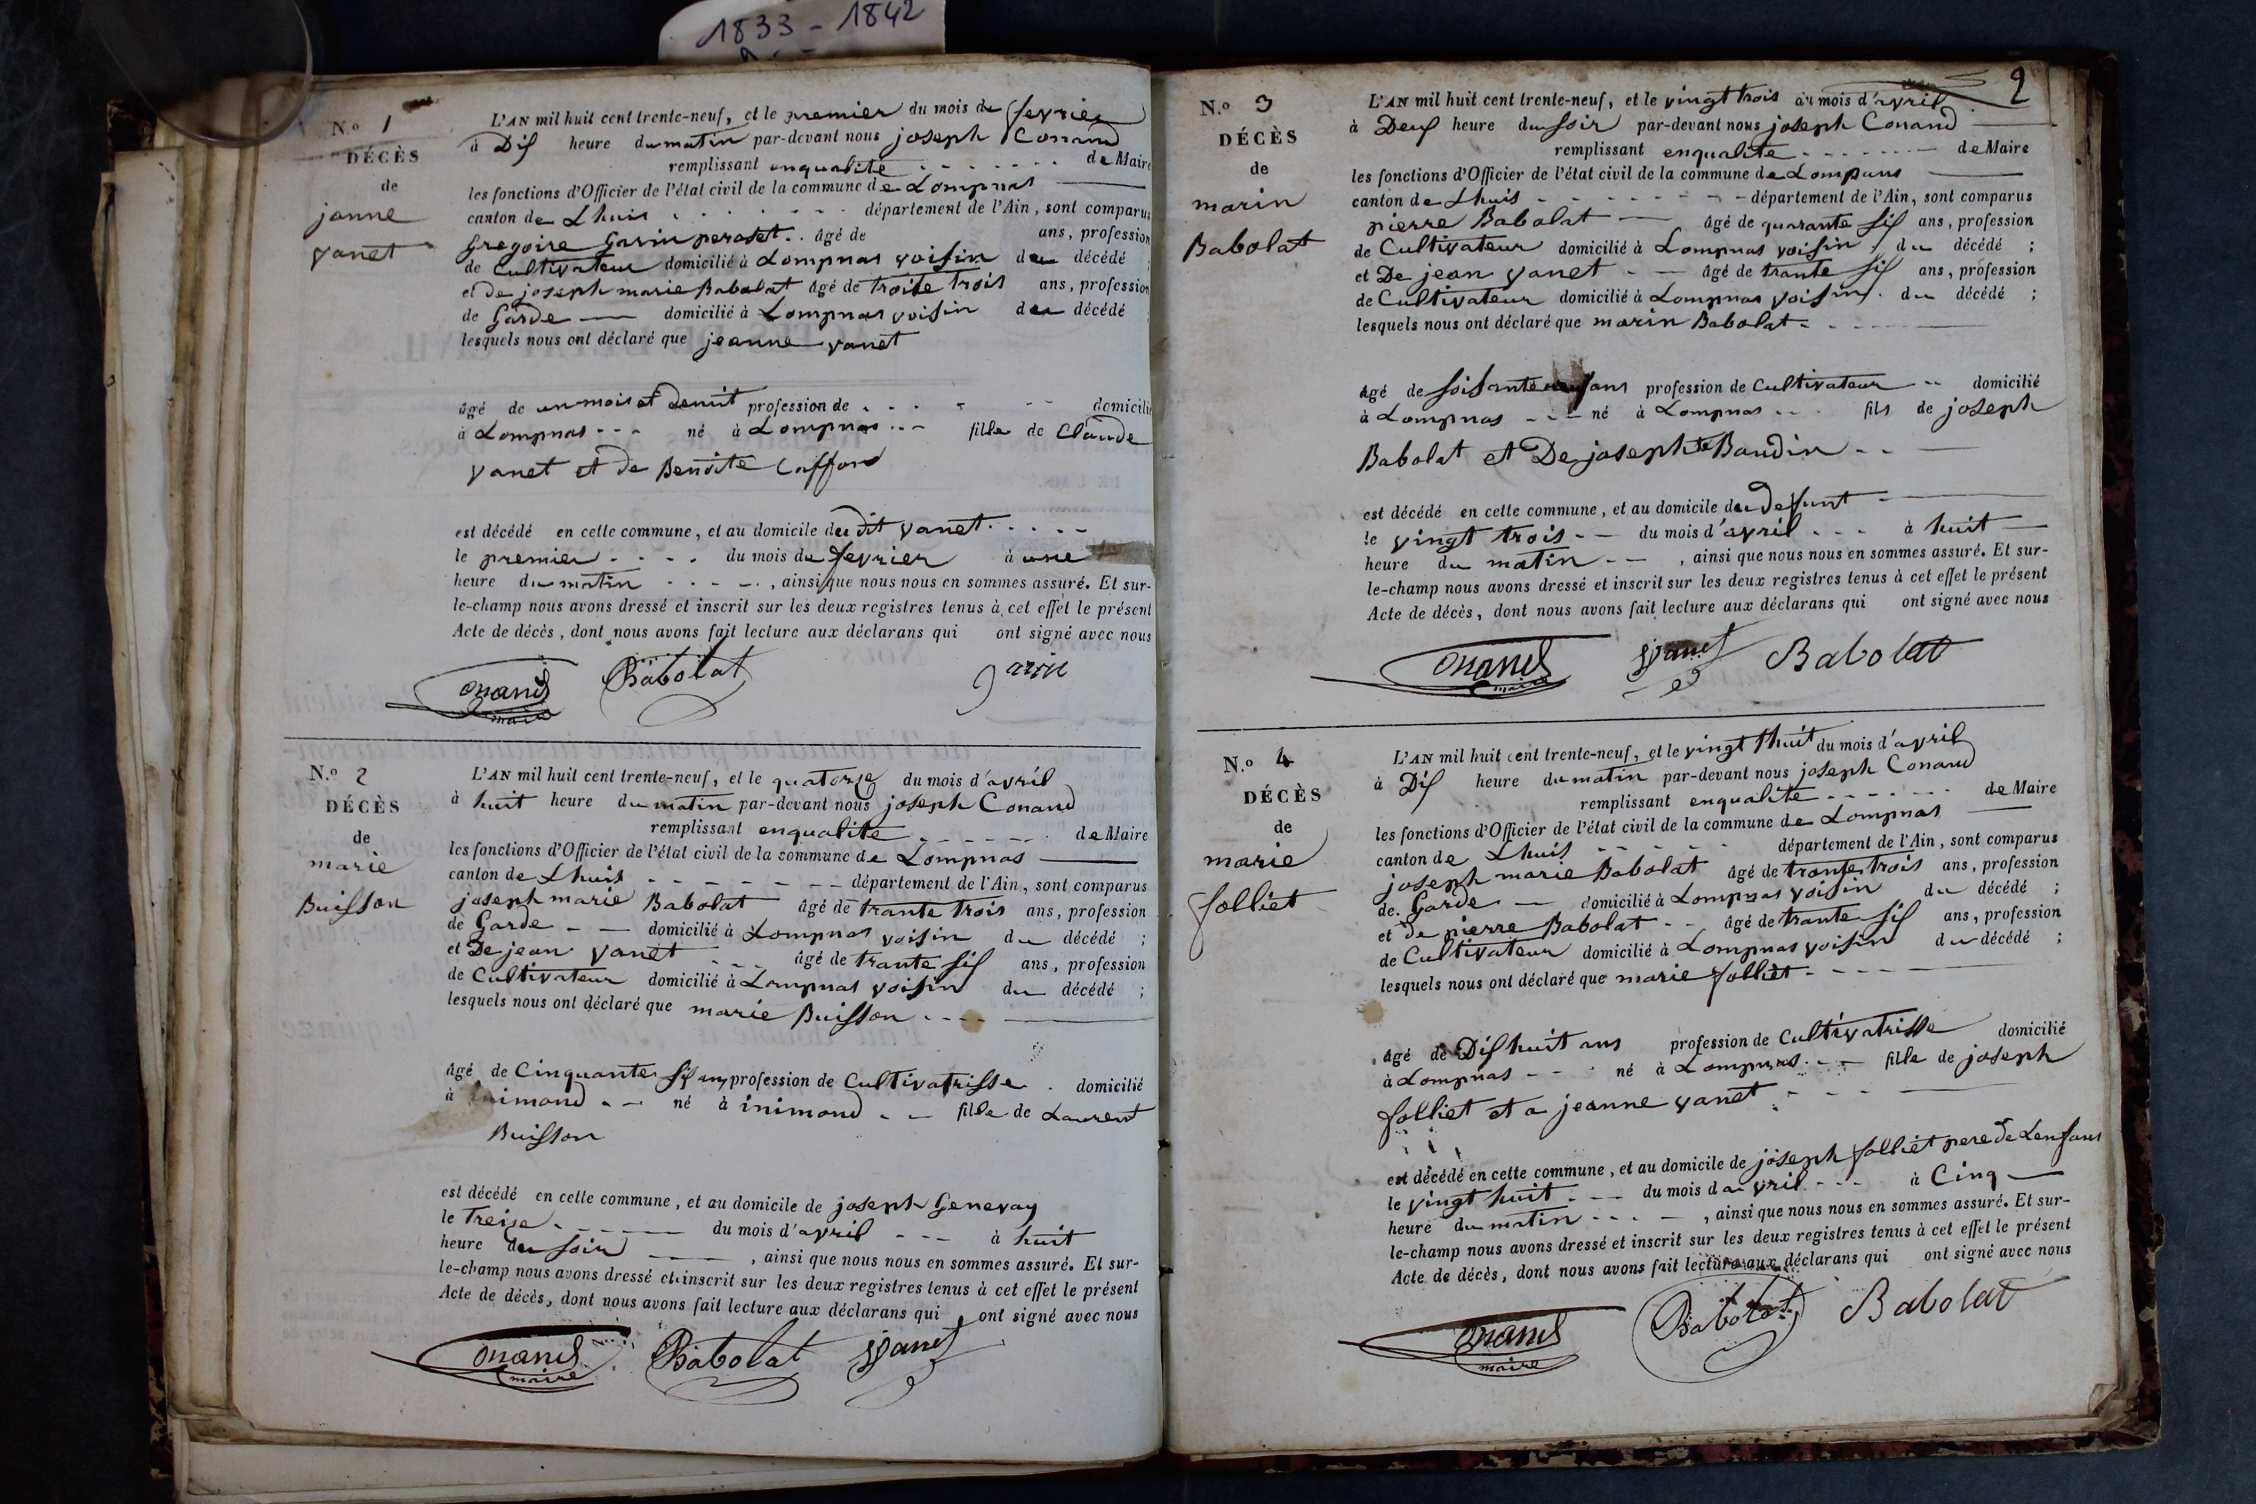 1833 - 1842
N.o 1
DÉCÈS
de
janne
vanet
L'AN mil huit cent trente-neuf, et le premier du mois de fevrier
à Dix heure du matin par-devant nous joseph Conand
remplissant enqualite de Maire
les fonctions d'Officier de l'état civil de la commune de Lompnas
canton de Lhuis département de l'Ain, sont comparus
Gregoire Gavin perozet âgé de ans, profession
de Cultivateur domicilié à Lompnas voisin du décédé ;
et De joseph marie Babolat âgé de troite trois ans, profession
de Garde domicilié à Lompnas voisin du décédé ;
lesquels nous ont déclaré que jeanne vanet
âgé de un mois et demit profession de domicilié
à Lompnas né à Lompnas fille de Claude
vanet et de Benoite
est décédé en cette commune, et au domicile du dit vanet
le premier du mois de fevrier à une
heure du matin , ainsi que nous nous en sommes assuré. Et sur-
le-champ nous avons dressé et inscrit sur les deux registres tenus à cet effet le présent
Acte de décès, dont nous avons fait lecture aux déclarans qui ont signé avec nous
Conand maire Babolat gavin
N.o 2
DÉCÈS
de
marie
Buisson
L'AN mil huit cent trente-neuf, et le quatorze du mois d'avril
à huit heure du matin par-devant nous joseph Conand
remplissant enqualite de Maire
les fonctions d'Officier de l'état civil de la commune de Lompnas
canton de Lhuis département de l'Ain, sont comparus
joseph marie Babolat âgé de trante trois ans, profession
de Garde domicilié à Lompnas voisin du décédé ;
et De jean vanet âgé de trante six ans, profession
de Cultivateur domicilié à Lompnas voisin du décédé ;
lesquels nous ont déclaré que marie Buisson
âgé de Cinquante six ans profession de Cultivatrisse domicilié
à inimond né à inimond fille de Laurent
Buisson
est décédé en cette commune, et au domicile de joseph Genevay
le Treize du mois d'avril à huit
heure du soir , ainsi que nous nous en sommes assuré. Et sur-
le-champ nous avons dressé et inscrit sur les deux registres tenus à cet effet le présent
Acte de décès, dont nous avons fait lecture aux déclarans qui ont signé avec nous
Conand maire Babolat vanet
2
N.o 3
DÉCÈS
de
marin
Babolat
L'AN mil huit cent trente-neuf, et le vingt trois du mois d'avril
à Deux heure du soir par-devant nous joseph Conand
remplissant enqualite de Maire
les fonctions d'Officier de l'état civil de la commune de Lompnas
canton de Lhuis département de l'Ain, sont comparus
pierre Babolat âgé de quarante six ans, profession
de Cultivateur domicilié à Lompnas voisin du décédé ;
et De jean vanet âgé de trante six ans, profession
de Cultivateur domicilié à Lompnas voisin du décédé ;
lesquels nous ont déclaré que marin Babolat
âgé de soisante ans profession de Cultivateur domicilié
à Lompnas né à Lompnas fils de joseph
Babolat et De josephte Baudin
est décédé en cette commune, et au domicile du defunt
le vingt trois du mois d'avril à huit
heure du matin , ainsi que nous nous en sommes assuré. Et sur-
le-champ nous avons dressé et inscrit sur les deux registres tenus à cet effet le présent
Acte de décès, dont nous avons fait lecture aux déclarans qui ont signé avec nous
Conand maire vanet Babolat
N.o 4
DÉCÈS
de
marie
folliet
L'AN mil huit cent trente-neuf, et le vingt huit du mois d'avril
à Dix heure du matin par-devant nous joseph Conand
remplissant enqualite de Maire
les fonctions d'Officier de l'état civil de la commune de Lompnas
canton de Lhuis département de l'Ain, sont comparus
joseph marie Babolat âgé de trante trois ans, profession
de Garde domicilié à Lompnas voisin du décédé ;
et De pierre Babolat âgé de trante six ans, profession
de Cultivateur domicilié à Lompnas voisin du décédé ;
lesquels nous ont déclaré que marie folliet
âgé de Dix huit ans profession de Cultivatrisse domicilié
à Lompnas né à Lompnas fille de joseph
folliet et a jeanne vanet
est décédé en cette commune, et au domicile de joseph folliet pere de Lenfant
le vingt huit du mois d avril à Cinq
heure du matin , ainsi que nous nous en sommes assuré. Et sur-
le-champ nous avons dressé et inscrit sur les deux registres tenus à cet effet le présent
Acte de décès, dont nous avons fait lecture aux déclarans qui ont signé avec nous
Conand maire Babolat Babolat